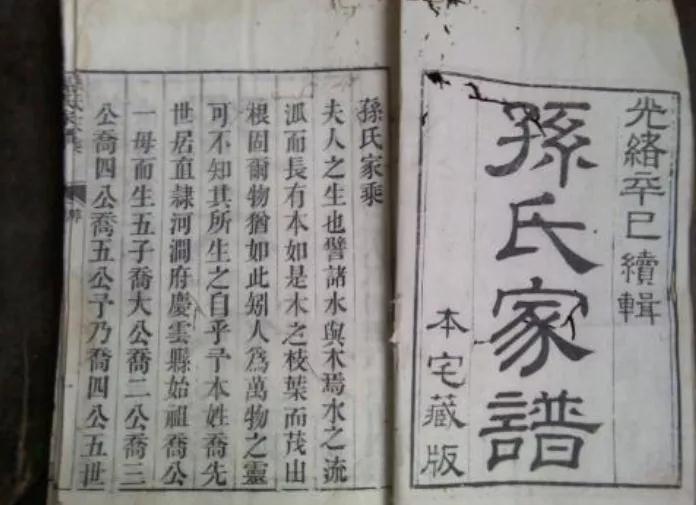 光緒辛巳續輯
孫氏家譜
本宅藏版
孫氏家乘
夫人之生也譬諸水與木焉水之流
派而長有本如是木之枝葉而茂出
根固爾物猶如此矧人為萬物之靈
可不知其所生之自乎予本姓喬先
世居直隸河澗府慶雲縣始祖喬公
一母而生五子喬大公喬二公喬三
公喬四公喬五公予乃喬四公五世